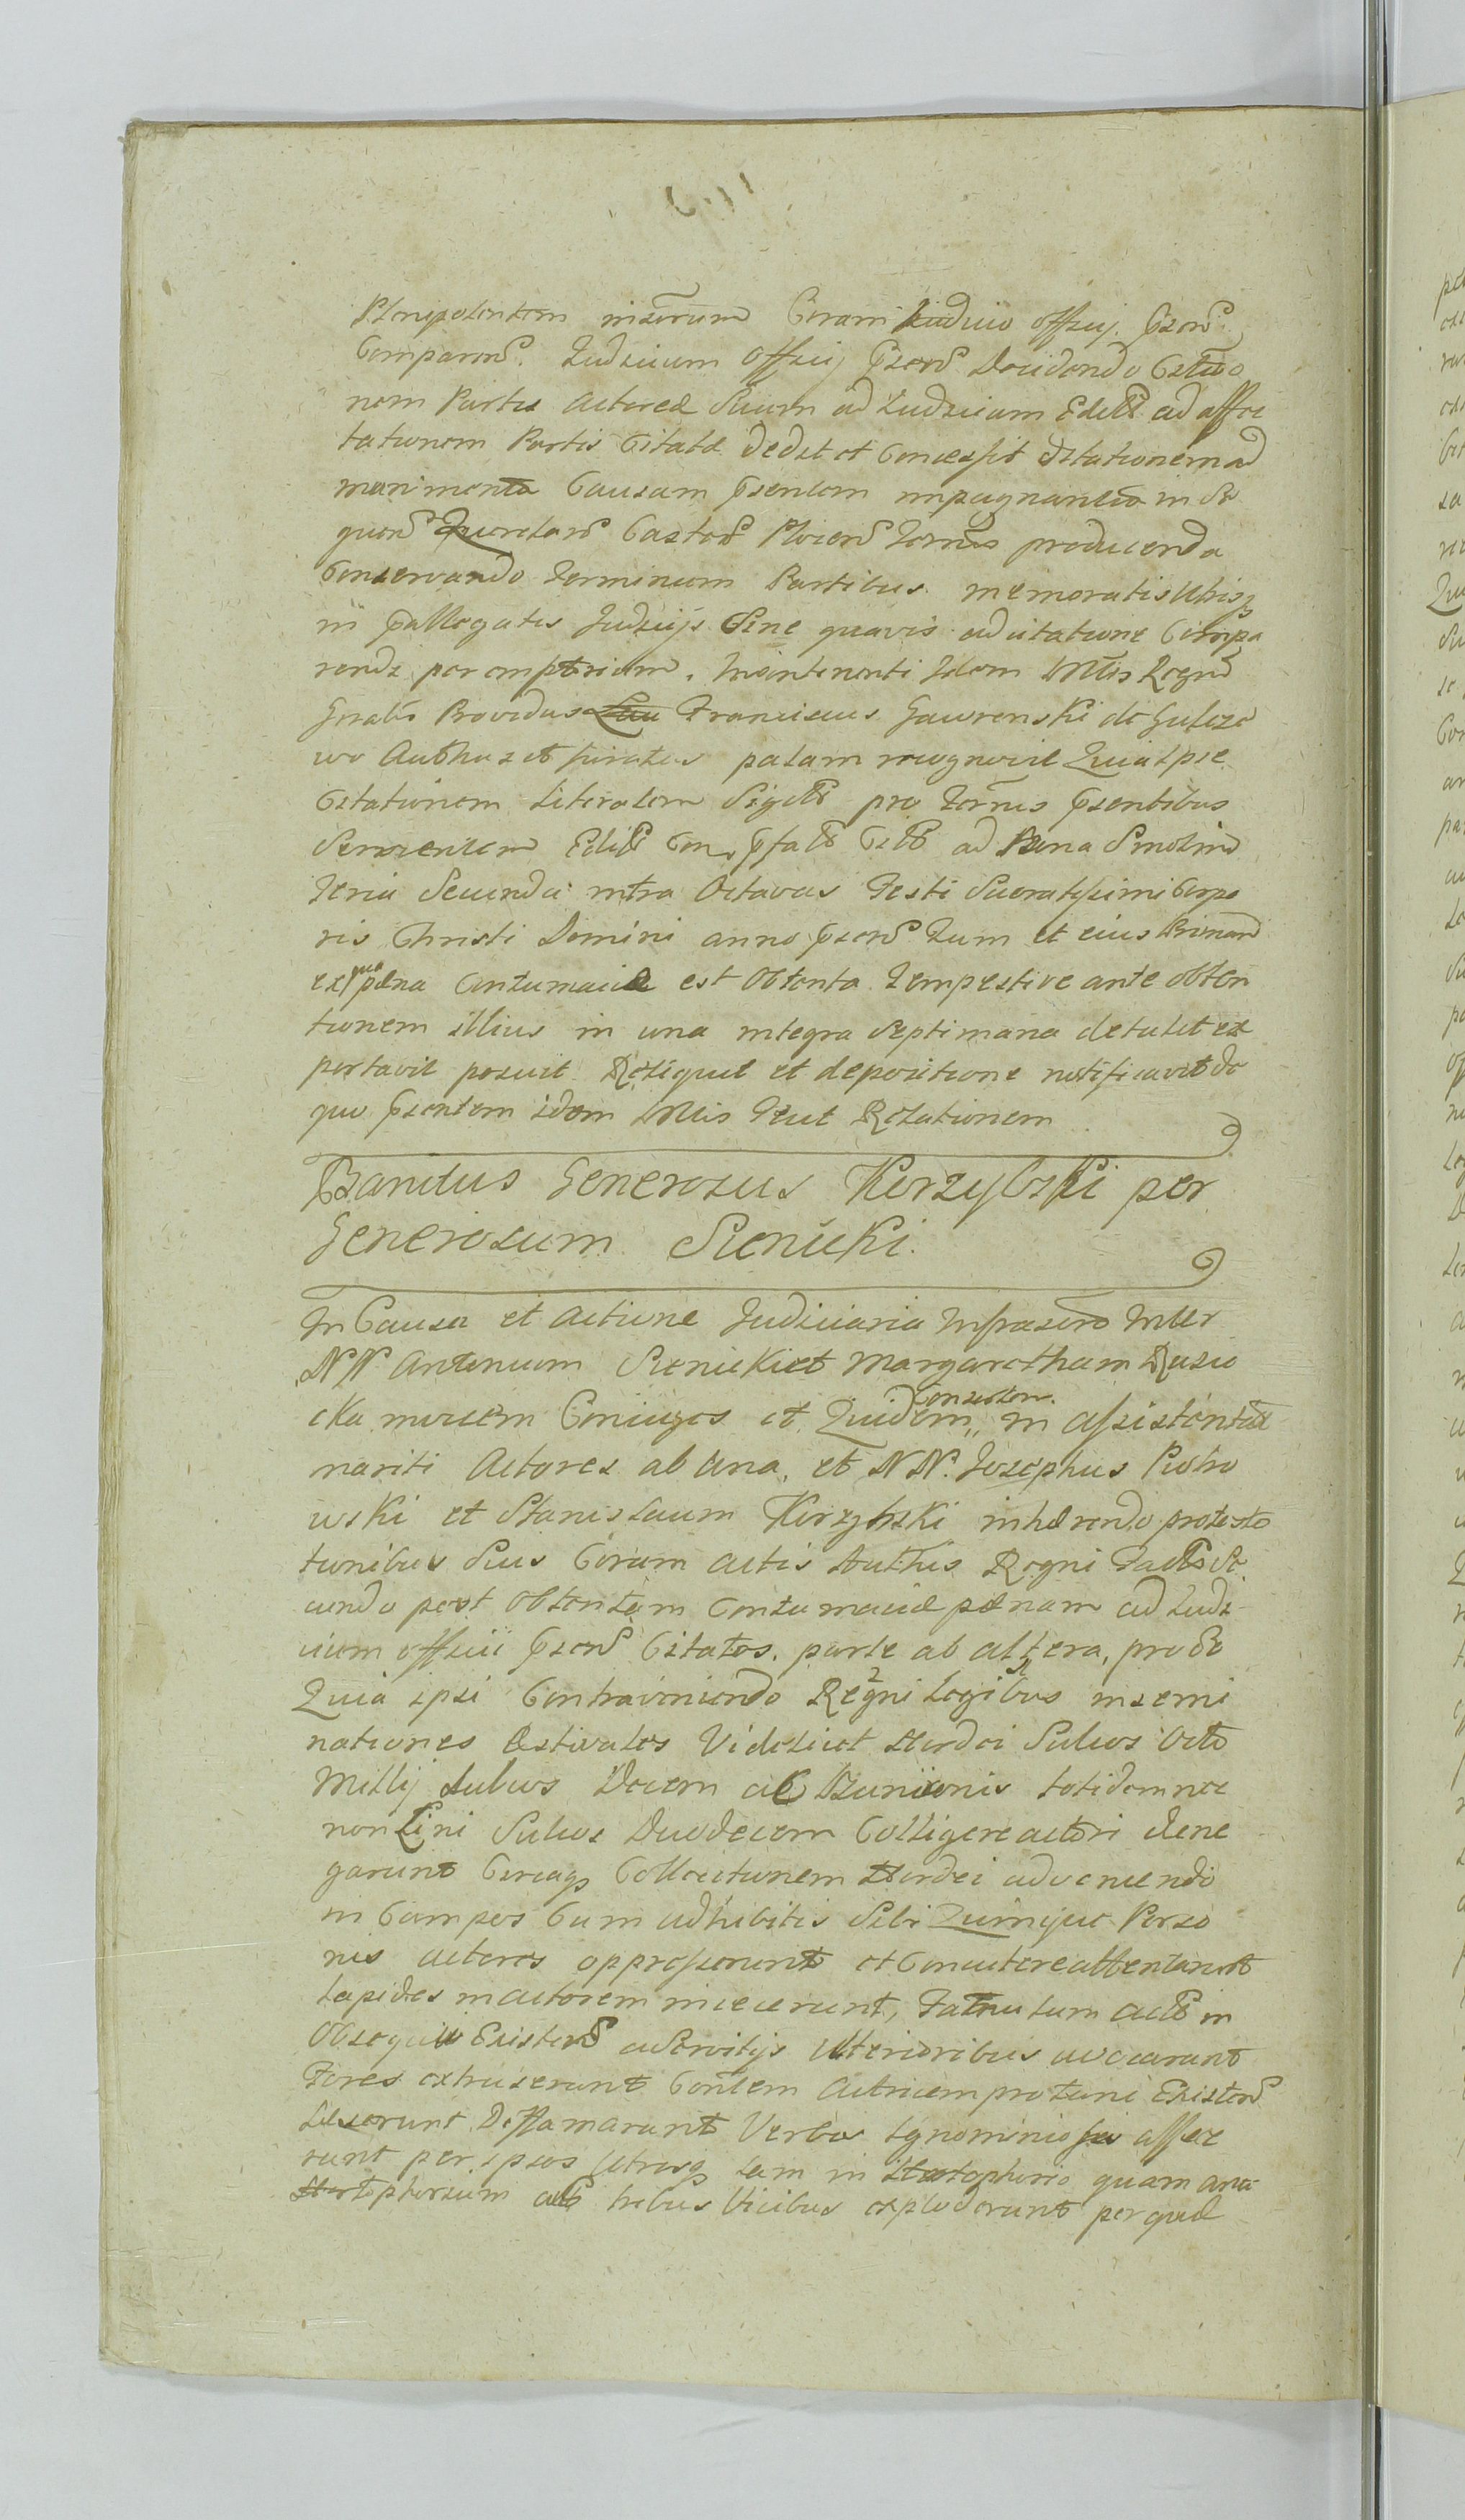 Plenipotentem infrascrum Coram Iudicio Officij Pnsens
Comparens. Judicium Officij Pnsens Decidendo Citatio
nem Partis Actoreae Suum ad Judicium Editt ad affec
tationem Partis Citatae dedit et Concessit dilationem ad
munimenta Causam Pnsentem impugnantia in Se
quens Querelars Castrs Plocens Termis producenda
Conservando terminum Partibus memoratis Utrisq
in Pallegatis Judicijs Sine quavis adcitatione Compa
rendi peremptorium. Interventi Idem Mtlis Regni
Gnalis Providus Lau Franciscus Gawrenski de Gulcze
wo Authus et Juratus palam recognovit Quia Ipse
Citationem Literalem Sigitt pro Termis Pnsentibus
Servientem Edit Con Pfatt Citt ad Bona Smolino
Feria Secunda intra Octavas Festi Sacratissimi Corpo
ris Christi Domini anno Pnsens tum et eius Primam
ex qua paena Contumaciae est Obtenta Tempestive ante obten
tionem illius in una integra Septimana detulit ex
portavit posuit Reliquit et depositione notificavit de
quo Pnsentem idem Mtlis Fecit Relationem
Banitus Generosus Korzybski per
Generosum Sienicki.
In Causa et Actione Judiciaria Infrascro Inter
NN Antonium Sienicki et Margaretham Rusie
cka invicem Coniuges et Quidem Consortem in assistentia
mariti Actores ab Una, et NN. Josephus Piotro
wski et Stanislaum Korzybski inhaerendo protesta
tionibus Suis Coram Actis Authis Regni Factis Se
cundo post Obtentam Contumaciae paenam ad Judi
cium Officii Pnsens Citatos, parte ab altera, pro eo
Quia ipsi Contraveniendo Regni Legibus insemi
nationes Aestivales Videlicet Hordei Sulcos Octo
Milij Sulcos Decem ac totidem nec
non Lini Sulcos Duodecem Colligere actori dene
garunt Circaq Collectionem Hordei adveniendo
in Campos Cum adhibitis Sibi Quinque Perso
nis actores oppresserunt et Concutere attentarunt
Lapides in actorem iniecerunt, Famulum Actt in
Obsequio Existens a Servitijs Ulterioribus avocarunt
Fores extruserunt Contem Actricem pro tunc Existens
Laeserunt Diffamarunt Verbis Ignominiosis affec
runt per ipsos Utrosq tam in quam ana
tribus Vicibus exploderunt per quae